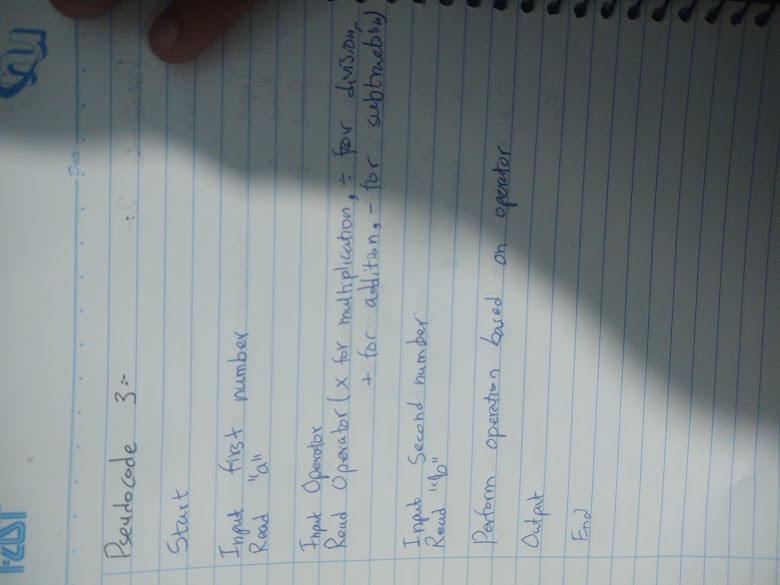 Date:
Pseudocode 3:-
Start
Input first number
Read "a"
Input Operator
Read Operator (x for multiplication, ÷ for division,
+ for addition, - for subtraction)
Input Second number
Read "b"
Perform operation based on operator
Output
End